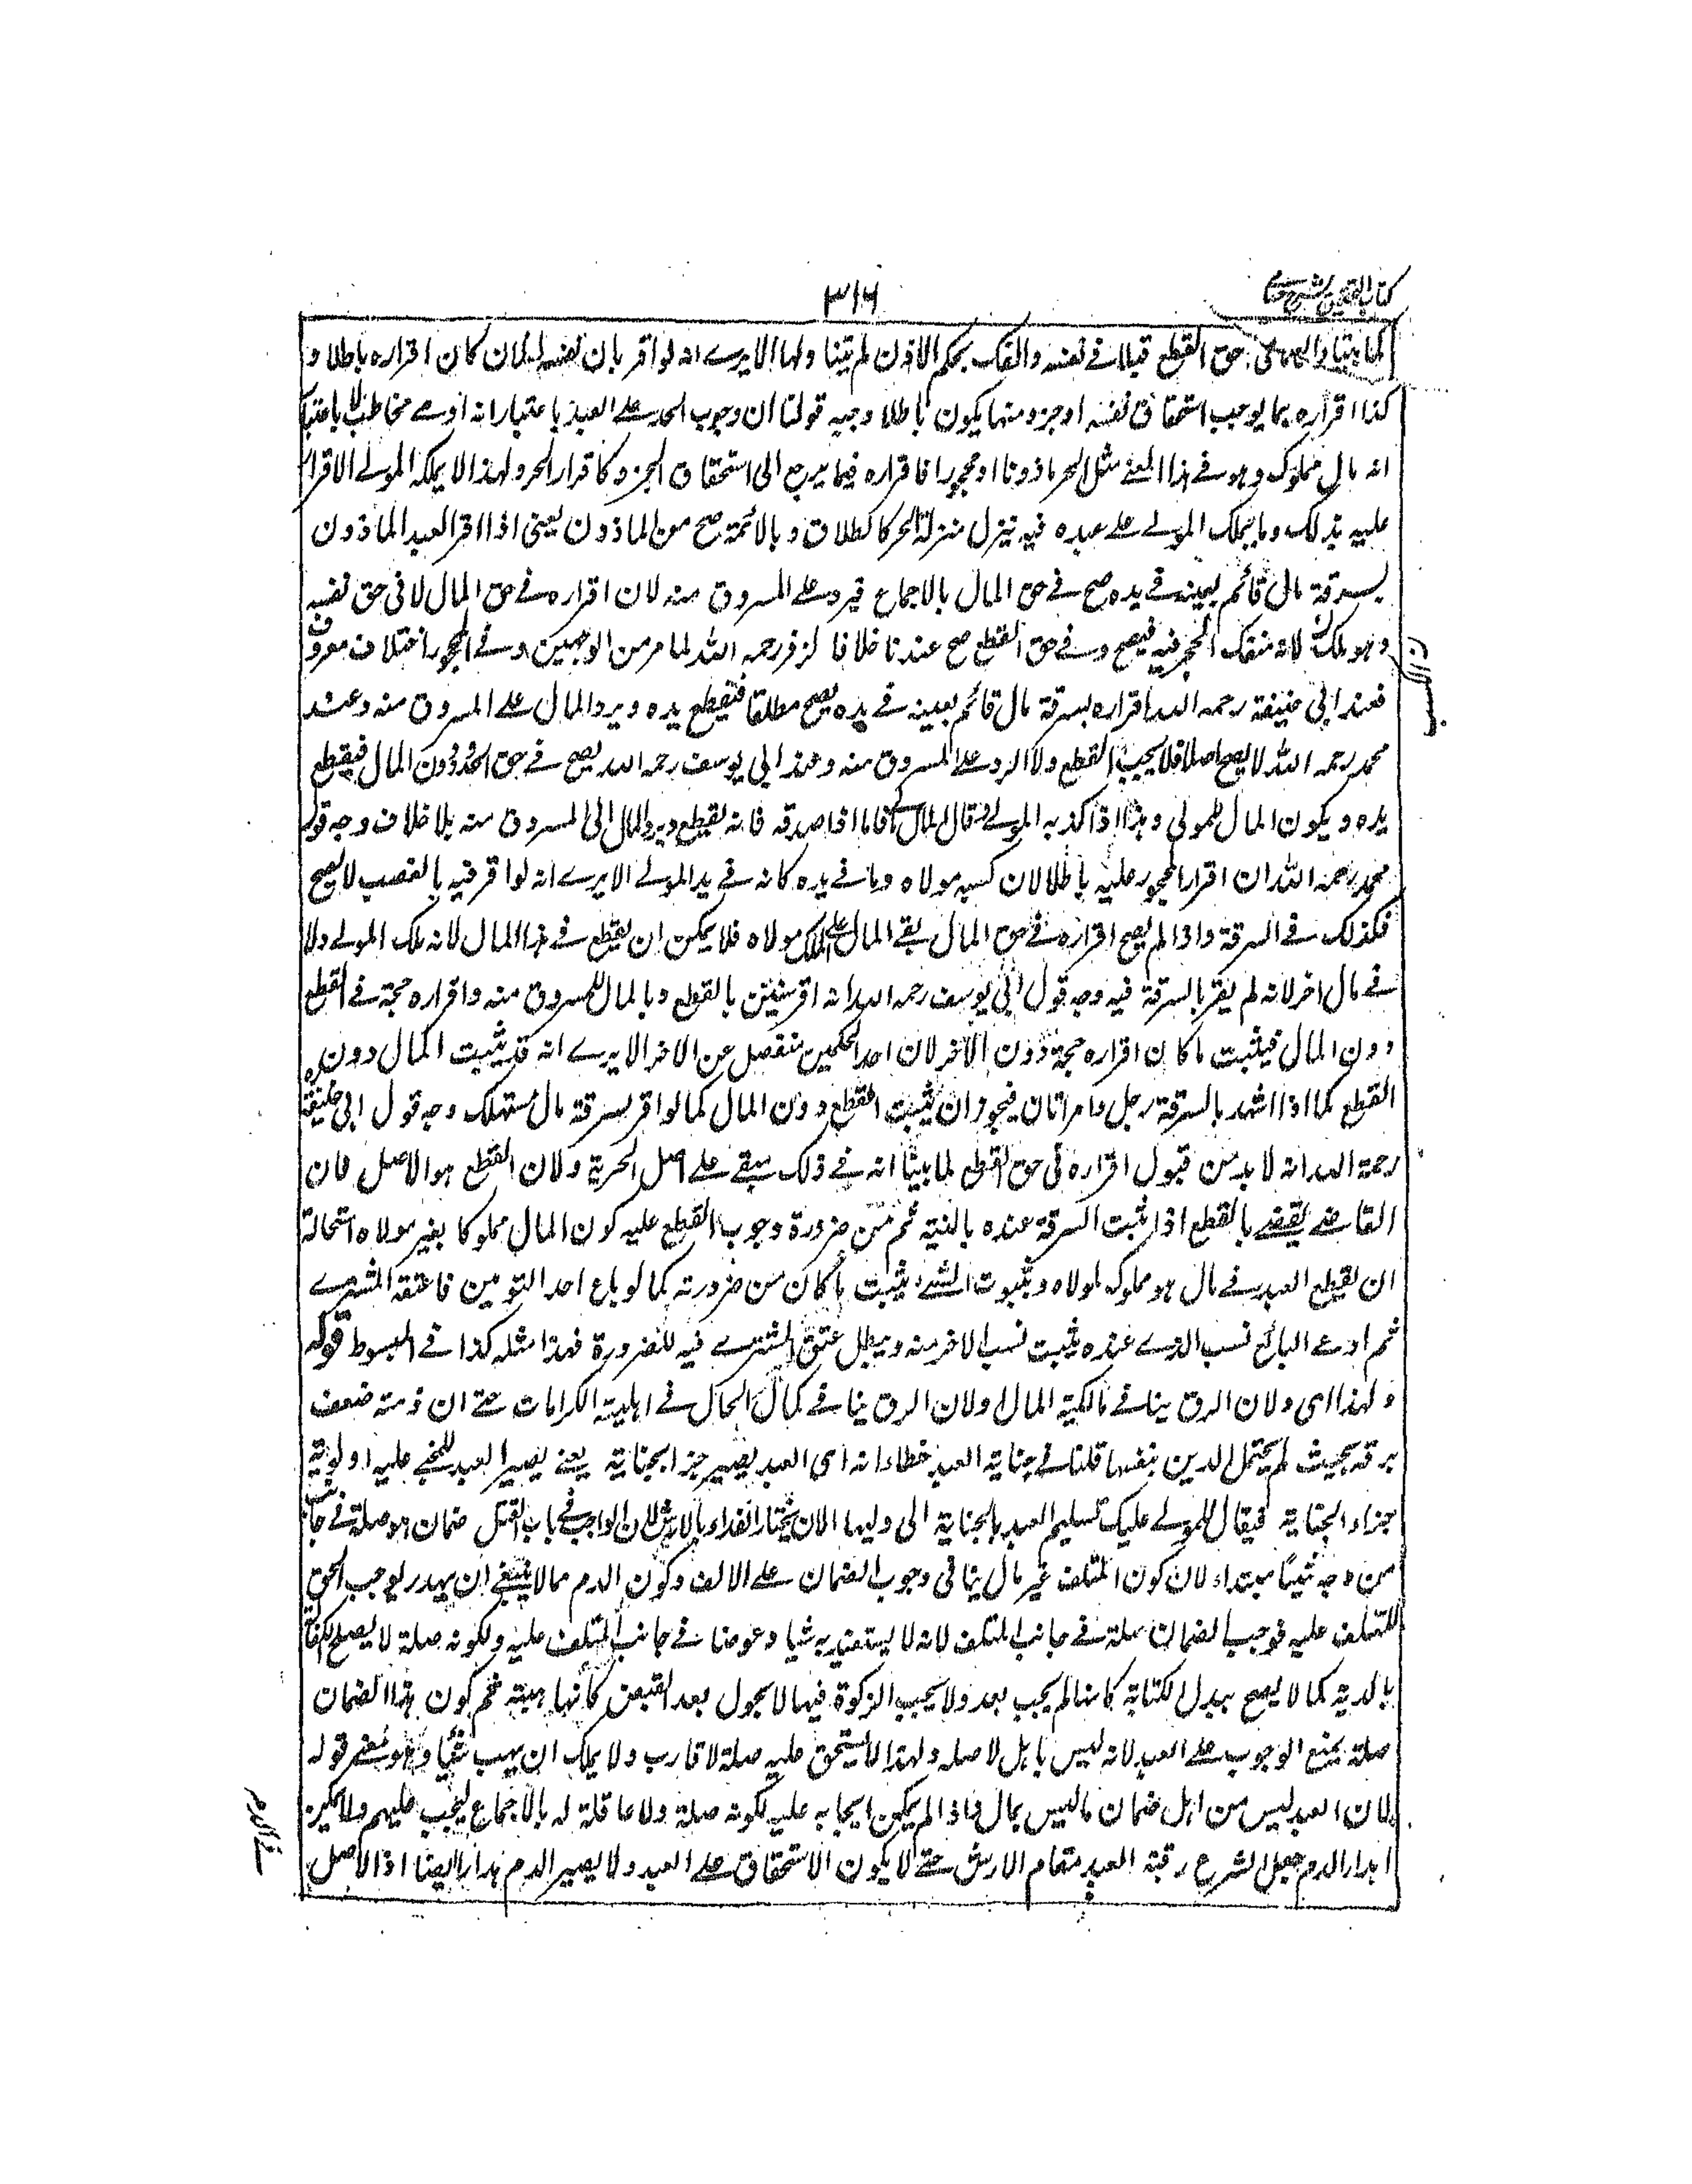 كتاب التحقيق شرح حسامي
٣١٦
كما بينا والعبد في حق القطع قبلا في نفسه والفك بحكم الاذن لم يتنا ولها الا يرى انه لو اقر بان نفسه لفلان كان اقراره باطلا و
كذا اقراره بما يوجب استحقاق نفسه او جزء منها يكون باطلا وجه قولنا ان وجوب الحد على العبد باعتبار انه ادمي مخاطب لا باعتبار
انه مال مملوك وهو في هذا المعنى مثل الحر ماذونا او محجورا فاقراره فيما يرجع الى استحقاق الجزء كاقرار الحر ولهذا لا يملك المولى الاقرار
عليه بذلك وما لا يملك المولى على عبده فيه ينزل منزلة الحر كالطلاق وبالقائمة صح من الماذون يعني اذا اقر العبد الماذون
بسرقة مال قائم بعينه في يده صح في حق المال بالاجماع فيرد على المسروق منه لان اقراره في حق المال لاقى حق نفسه
وهو ملك لانه منفك الحجر فيه فيصح وفي حق القطع صح عندنا خلافا لزفر رحمه الله لما مر من الوجهين وفي المحجور اختلاف معروف
فعند ابي حنيفة رحمه الله اقراره بسرقة مال قائم بعينه في يده يصح مطلقا فيقطع يده ويرد المال على المسروق منه وعند
محمد رحمه الله لا يصح اصلا فلا يجب القطع ولا الرد على المسروق منه وعند ابي يوسف رحمه الله يصح في حق الحد دون المال فيقطع
يده ويكون المال للمولى وهذا اذا كذبه المولى وقال المال مالي فاما اذا صدقه فانه يقطع ويرد المال الى المسروق منه بلا خلاف وجه قول
محمد رحمه الله ان اقرار المحجور عليه باطل لان كسبه مولاه وما في يده كانه في يد المولى الا يرى انه لو اقر فيه بالغصب لا يصح
فكذلك في السرقة واذا لم يصح اقراره في حق المال بقي المال على ملك مولاه فلا يمكن ان يقطع في هذا المال لانه ملك المولى ولا
في مال اخر لانه لم يقر بالسرقة فيه وجه قول ابي يوسف رحمه الله انه اقر بشيئين بالقطع وبالمال للمسروق منه واقراره حجة في القطع
دون المال فيثبت ما كان اقراره حجة دون الاخر لان احد الحكمين منفصل عن الاخر الا يرى انه قد يثبت المال دون
القطع كما اذا شهد بالسرقة رجل وامراتان فيجوز ان يثبت القطع دون المال كما لو اقر بسرقة مال مستهلك وجه قول ابي حنيفة
رحمة الله انه لا بد من قبول اقراره في حق القطع لما بينا انه في ذلك مبقي على اصل الحرية ولان القطع هو الاصل فان
القاضي يقضي بالقطع اذا ثبت السرقة عنده بالبينة ثم من ضرورة وجوب القطع عليه كون المال مملوكا بغير مولاه استحالة
ان يقطع العبد في مال هو مملوك لمولاه وبثبوت الشيء يثبت ما كان من ضرورته كما لو باع احد التومين فاعتقه المشتري
ثم ادعى البائع نسب الذي عنده يثبت نسب الاخر منه ويبطل عتق المشتري فيه للضرورة فهذا مثله كذا في المبسوط قوله
ولهذا اى ولان الرق ينافي مالكية المال او لان الرق ينافي كمال الحال في اهلية الكرامات حتى ان ذمته ضعف
برقه بحيث لم يحتمل الدين بنفسها قلنا في جناية العبد خطاء انه اى العبد يصير جزاء بجنايته يعني يصير العبد للمجني عليه او لوليه
جزاء الجناية فيقال للمولى عليك تسليم العبد بالجناية الى وليها الا ان يختار الفداء بالارش لان الواجب في باب القتل ضمان هو صلة في جانب
من وجب شيئا مبتداء لان كون المتلف غير مال ينافي وجوب الضمان على الالف وكون الدم مما لا ينبغي ان يهدر يوجب الحق
للمتلف عليه فوجب الضمان صلة في جانب المتلف لانه لا يستفيد به شيا وعوضا في جانب المتلف عليه ولكونه صلة لا يصلح الكفالة
بالدية كما لا يصح ببدل الكتابة كانما لم يجب بعد ولا يجب الزكوة فيها الا بحول بعد القبض كانها هبة ثم كون هذا الضمان
صلة يمنع الوجوب على العبد لانه ليس باهل لا صله ولهذا لا يستحق عليه صلة لاقارب ولا يملك ان يهب شيا وهو معنى قوله
لان العبد ليس من اهل ضمان ما ليس بمال واذا لم يمكن ايجابه عليه لكونه صلة ولا عاقلة له بالاجماع ليجب عليهم ولا يمكن
اهدار الدم جعل الشرع رقبة العبد مقام الارش حتى لا يكون الاستحقاق على العبد ولا يصير الدم هدرا ايضا اذ الاصل